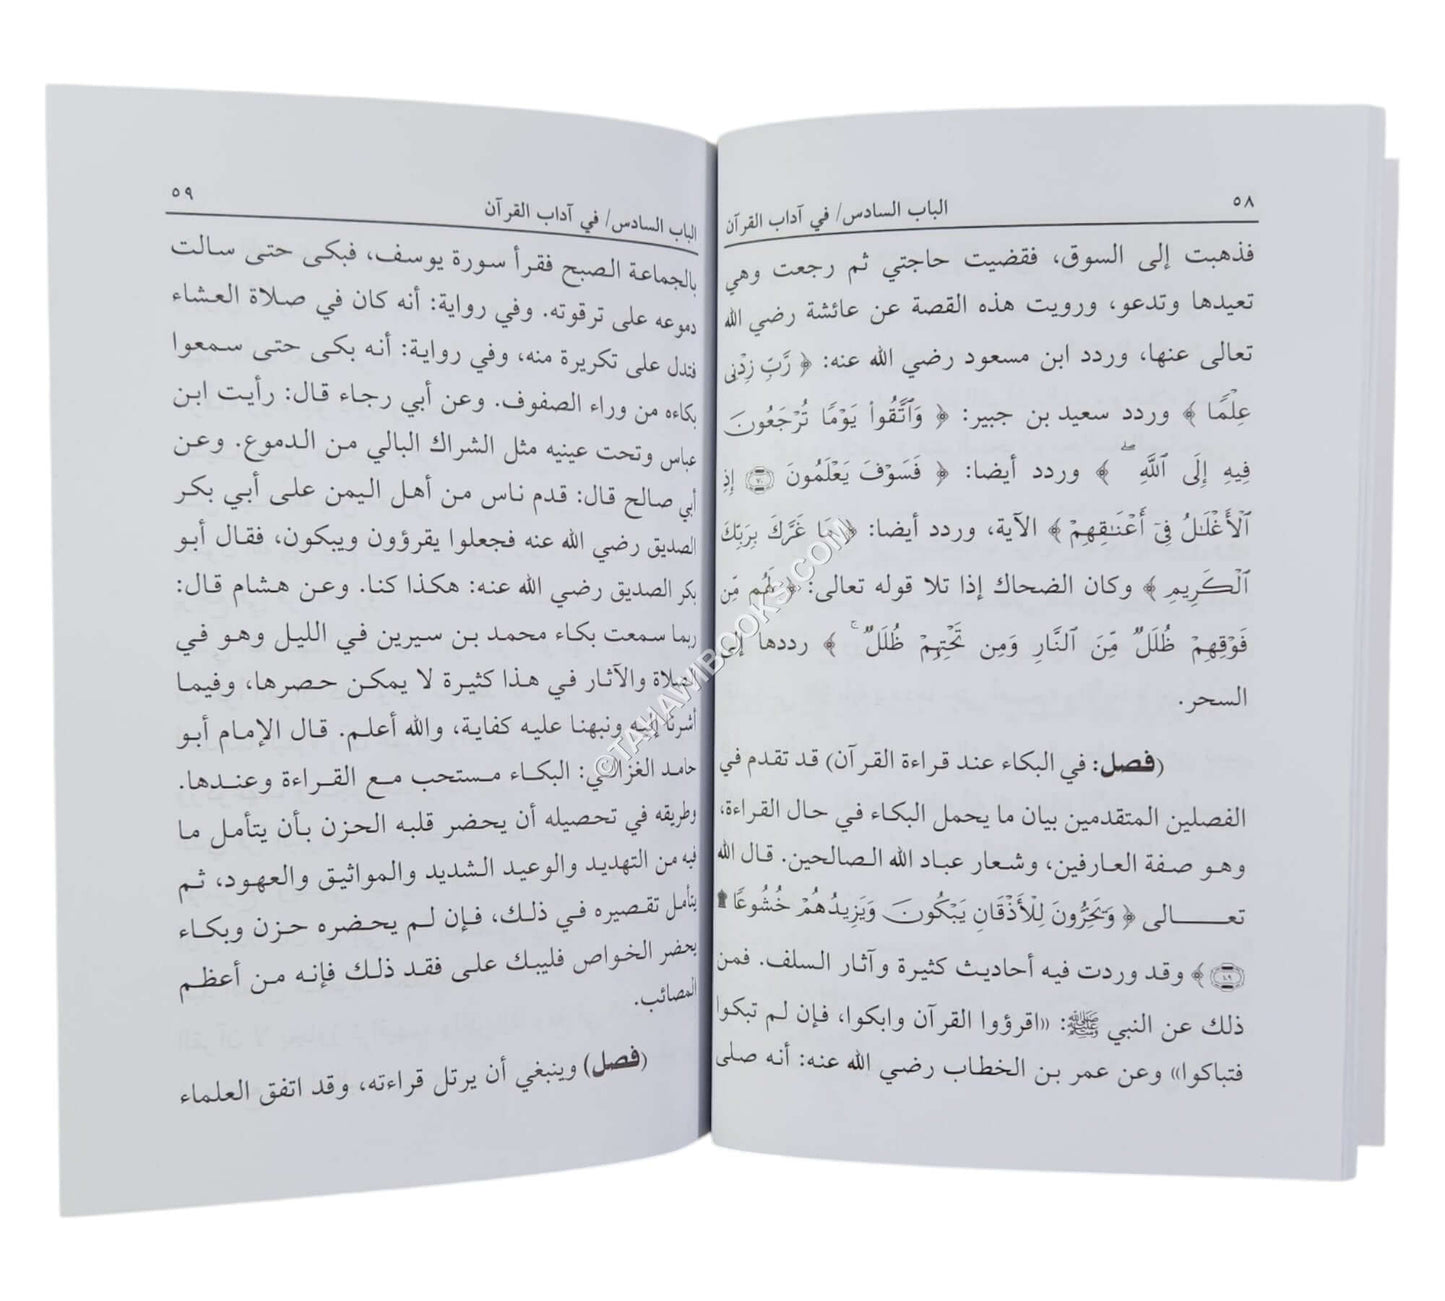 ٥٨
الباب السادس/ في آداب القرآن
فذهبت إلى السوق، فقضيت حاجتي ثم رجعت وهي
تعيدها وتدعو، ورويت هذه القصة عن عائشة رضي الله
تعالى عنها، وردد ابن مسعود رضي الله عنه: ﴿ رَّبِّ زِدْنِى
عِلْمًا ﴾ وردد سعيد بن جبير: ﴿ وَٱتَّقُوا۟ يَوْمًا تُرْجَعُونَ
فِيهِ إِلَى ٱللَّهِ ۖ ﴾ وردد أيضا: ﴿ فَسَوْفَ يَعْلَمُونَ ٧٠ إِذِ
ٱلْأَغْلَـٰلُ فِىٓ أَعْنَـٰقِهِمْ ﴾ الآية، وردد أيضا: ﴿ مَا غَرَّكَ بِرَبِّكَ
ٱلْكَرِيمِ ﴾ وكان الضحاك إذا تلا قوله تعالى: ﴿ لَهُم مِّن
فَوْقِهِمْ ظُلَلٌ مِّنَ ٱلنَّارِ وَمِن تَحْتِهِمْ ظُلَلٌ ۚ ﴾ رددها إلى
السحر.
(فصل: في البكاء عند قراءة القرآن) قد تقدم في
الفصلين المتقدمين بيان ما يحمل البكاء في حال القراءة،
وهو صفة العارفين، وشعار عباد الله الصالحين. قال الله
تعـــالى ﴿ وَيَخِرُّونَ لِلْأَذْقَانِ يَبْكُونَ وَيَزِيدُهُمْ خُشُوعًا ۩
١٠٩ ﴾ وقد وردت فيه أحاديث كثيرة وآثار السلف. فمن
ذلك عن النبي ﷺ: «اقرؤوا القرآن وابكوا، فإن لم تبكوا
فتباكوا» وعن عمر بن الخطاب رضي الله عنه: أنه صلى
٥٩
الباب السادس/ في آداب القرآن
بالجماعة الصبح فقرأ سورة يوسف، فبكى حتى سالت
دموعه على ترقوته. وفي رواية: أنه كان في صلاة العشاء
فتدل على تكريرة منه، وفي رواية: أنه بكى حتى سمعوا
بكاءه من وراء الصفوف. وعن أبي رجاء قال: رأيت ابن
عباس وتحت عينيه مثل الشراك البالي من الدموع. وعن
أبي صالح قال: قدم ناس من أهل اليمن على أبي بكر
الصديق رضي الله عنه فجعلوا يقرؤون ويبكون، فقال أبو
بكر الصديق رضي الله عنه: هكذا كنا. وعن هشام قال:
ربما سمعت بكاء محمد بن سيرين في الليل وهو في
الصلاة والآثار في هذا كثيرة لا يمكن حصرها، وفيما
أشرنا إليه ونبهنا عليه كفاية، والله أعلم. قال الإمام أبو
حامد الغزالي: البكاء مستحب مع القراءة وعندها.
وطريقه في تحصيله أن يحضر قلبه الحزن بأن يتأمل ما
فيه من التهديد والوعيد الشديد والمواثيق والعهود، ثم
يتأمل تقصيره في ذلك، فإن لم يحضره حزن وبكاء
يحضر الخواص فليبك على فقد ذلك فإنه من أعظم
المصائب.
(فصل) وينبغي أن يرتل قراءته، وقد اتفق العلماء
©TAHAWIBOOKS.COM